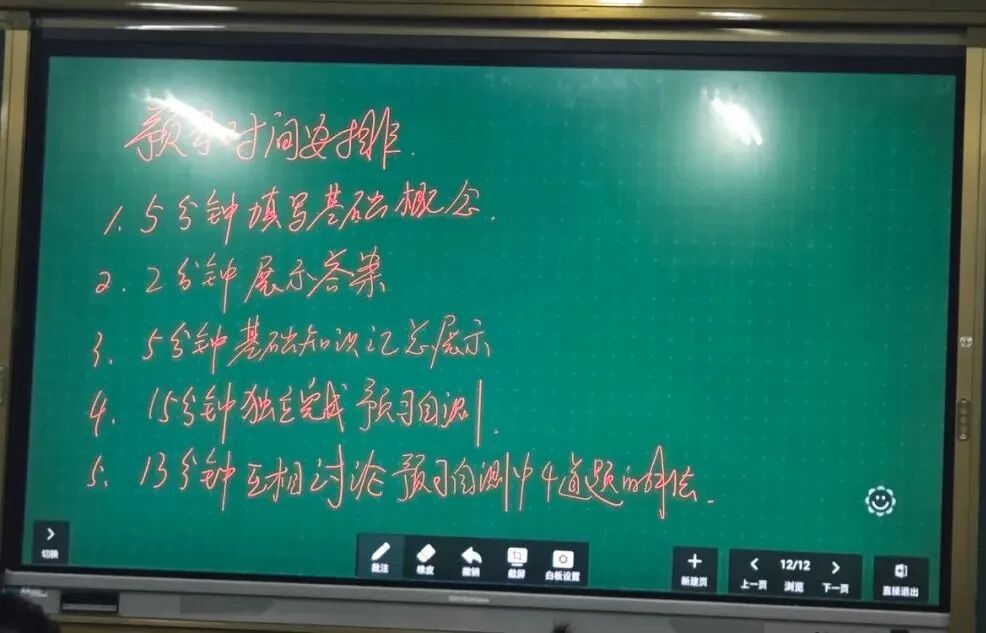 预习时间安排.
1. 5分钟填写基础概念.
2. 2分钟展示答案
3. 5分钟基础知识汇总展示
4. 15分钟独立完成预习自测.
5. 13分钟互相讨论预习自测中4道题的解法.
切换
批注
橡皮
撤销
截屏
白板设置
新建页
上一页
12/12
浏览
下一页
直接退出